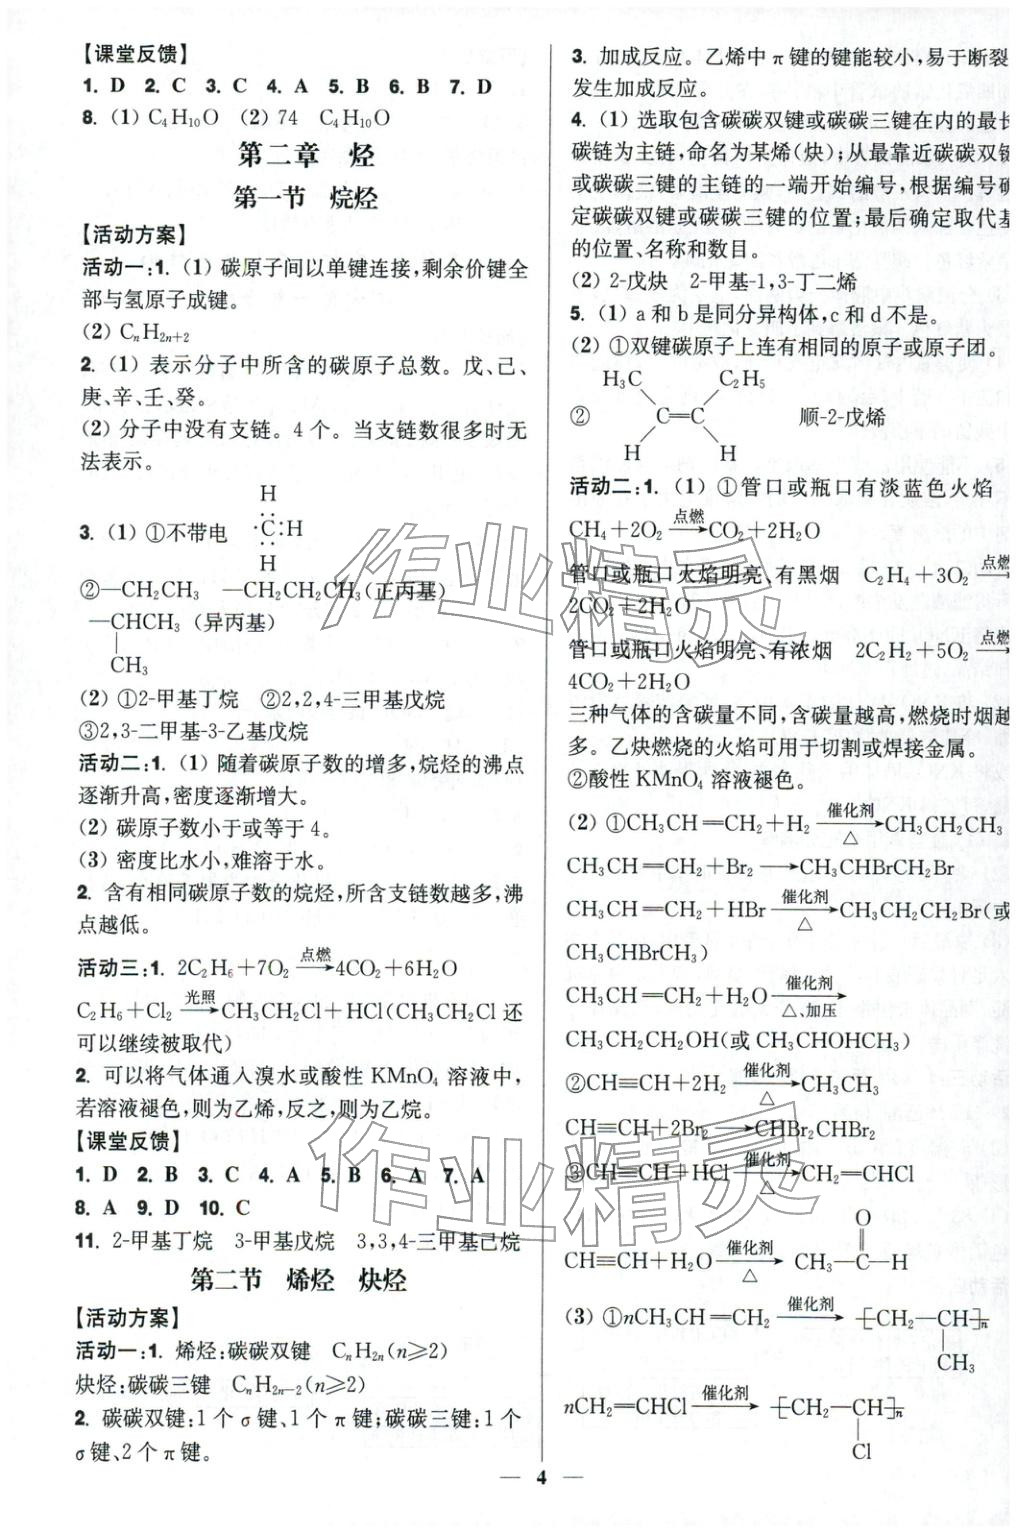 【课堂反馈】
1. D 2. C 3. C 4. A 5. B 6. B 7. D
8. (1) C₄H₁₀O (2) 74 C₄H₁₀O
第二章 烃
第一节 烷烃
【活动方案】
活动一:1. (1) 碳原子间以单键连接,剩余价键全
部与氢原子成键。
(2) CₙH₂ₙ₊₂
2. (1) 表示分子中所含的碳原子总数。戊、己、
庚、辛、壬、癸。
(2) 分子中没有支链。4 个。当支链数很多时无
法表示。
H
3. (1) ①不带电 ·C:H
H
②—CH₂CH₃ —CH₂CH₂CH₃(正丙基)
—CHCH₃ (异丙基)
CH₃
(2) ①2-甲基丁烷 ②2,2,4-三甲基戊烷
③2,3-二甲基-3-乙基戊烷
活动二:1. (1) 随着碳原子数的增多,烷烃的沸点
逐渐升高,密度逐渐增大。
(2) 碳原子数小于或等于 4。
(3) 密度比水小,难溶于水。
2. 含有相同碳原子数的烷烃,所含支链数越多,沸
点越低。
活动三:1. 2C₂H₆+7O₂ 点燃→4CO₂+6H₂O
C₂H₆+Cl₂ 光照→CH₃CH₂Cl+HCl(CH₃CH₂Cl 还
可以继续被取代)
2. 可以将气体通入溴水或酸性 KMnO₄ 溶液中,
若溶液褪色,则为乙烯,反之,则为乙烷。
【课堂反馈】
1. D 2. B 3. C 4. A 5. B 6. A 7. A
8. A 9. D 10. C
11. 2-甲基丁烷 3-甲基戊烷 3,3,4-三甲基己烷
第二节 烯烃 炔烃
【活动方案】
活动一:1. 烯烃:碳碳双键 CₙH₂ₙ(n⩾2)
炔烃:碳碳三键 CₙH₂ₙ₋₂(n⩾2)
2. 碳碳双键:1 个 σ 键、1 个 π 键;碳碳三键:1 个
σ 键、2 个 π 键。
3. 加成反应。乙烯中 π 键的键能较小,易于断裂
发生加成反应。
4. (1) 选取包含碳碳双键或碳碳三键在内的最长
碳链为主链,命名为某烯(炔);从最靠近碳碳双键
或碳碳三键的主链的一端开始编号,根据编号确
定碳碳双键或碳碳三键的位置;最后确定取代基
的位置、名称和数目。
(2) 2-戊炔 2-甲基-1,3-丁二烯
5. (1) a 和 b 是同分异构体,c 和 d 不是。
(2) ①双键碳原子上连有相同的原子或原子团。
H₃C C₂H₅
② C=C 顺-2-戊烯
H H
活动二:1. (1) ①管口或瓶口有淡蓝色火焰
CH₄+2O₂ 点燃→CO₂+2H₂O
管口或瓶口火焰明亮、有黑烟 C₂H₄+3O₂ 点燃→
2CO₂+2H₂O
管口或瓶口火焰明亮、有浓烟 2C₂H₂+5O₂ 点燃→
4CO₂+2H₂O
三种气体的含碳量不同,含碳量越高,燃烧时烟越
多。乙炔燃烧的火焰可用于切割或焊接金属。
②酸性 KMnO₄ 溶液褪色。
(2) ①CH₃CH=CH₂+H₂ 催化剂→△ CH₃CH₂CH₃
CH₃CH=CH₂+Br₂ ⟶CH₃CHBrCH₂Br
CH₃CH=CH₂+HBr 催化剂→△ CH₃CH₂CH₂Br(或
CH₃CHBrCH₃)
CH₃CH=CH₂+H₂O 催化剂→△、加压
CH₃CH₂CH₂OH(或 CH₃CHOHCH₃)
②CH≡CH+2H₂ 催化剂→△ CH₃CH₃
CH≡CH+2Br₂ ⟶CHBr₂CHBr₂
③CH≡CH+HCl 催化剂→△ CH₂=CHCl
O
CH≡CH+H₂O 催化剂→△ CH₃—C—H
(3) ①nCH₃CH=CH₂ 催化剂→ [CH₂—CH]ₙ
CH₃
nCH₂=CHCl 催化剂→ [CH₂—CH]ₙ
Cl
— 4 —
作业精灵
作业精灵